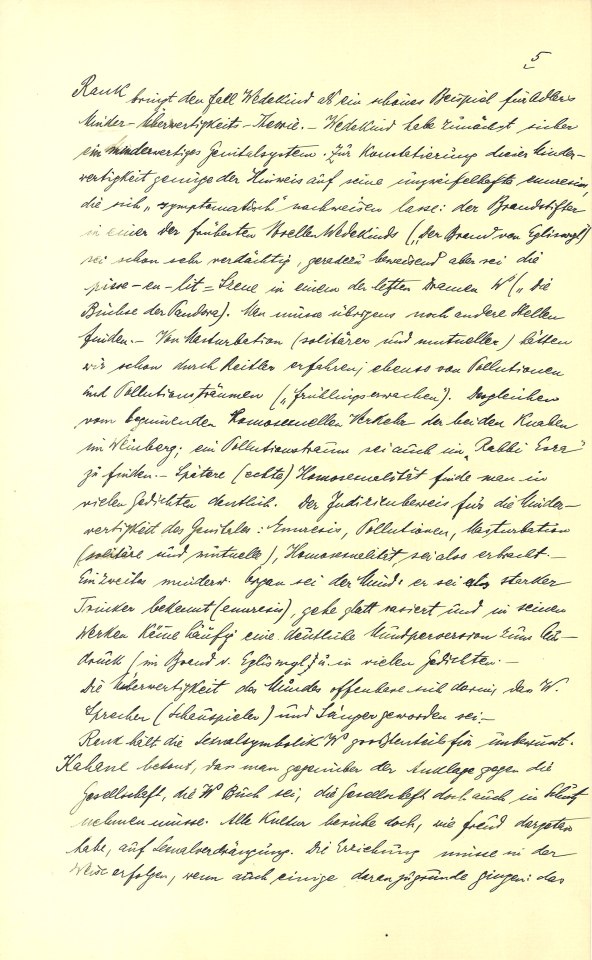 5
Rank bringt den Fall Wedekind als ein schönes Beispiel für Adlers
Minder-Überwertigkeits-Theorie. – Wedekind habe zunächst sicher
ein minderwertiges Genitalsystem. Zur Konstatierung dieser Minder-
wertigkeit genüge der Hinweis auf seine unzweifelhafte enuresis,
die sich „symptomatisch" nachweisen lasse: der Brandstifter
in einer der frühesten Novellen Wedekinds („Der Brand von Egliswyl")
sei schon sehr verdächtig, geradezu beweisend aber sei die
pisse-en-lit=Szene in einem der letzten Dramen W's („Die
Büchse der Pandora). Man müsse übrigens noch andere Stellen
finden. – Von Masturbation (solitärer und mutueller) hätten
wir schon durch Reitler erfahren; ebenso von Pollutionen
und Pollutionsträumen („Frühlingserwachen"). Desgleichen
vom beginnenden homosexuellen Verkehr der beiden Knaben
im Weinberg; ein Pollutionstraum sei auch in „Rabbi Esra"
zu finden. – Spätere (echte) Homosexualität finde man in
vielen Gedichten deutlich. Der Indizienbeweis für die Minder-
wertigkeit des Genitales: Enuresis, Pollutionen, Masturbation
(solitäre und mutuelle), Homosexualität, sei also erbracht. –
Ein zweites minderw. Organ sei der Mund: er sei als starker
Trinker bekannt (enuresis), gehe glatt rasiert und in seinen
Werken käme häufig eine deutliche Mundperversion zum Aus-
druck (im Brand v. Egliswyl) u. in vielen Gedichten. –
Die Überwertigkeit des Mundes offenbare sich darin, dass W.
Sprecher (Schauspieler) und Sänger geworden sei. –
Rank hält die Sexualsymbolik W's großenteils für unbewusst.
Kahane betont, dass man gegenüber der Anklage gegen die
Gesellschaft, die W's Buch sei, die Gesellschaft doch auch in Schutz
nehmen müsse. Alle Kultur beruhe doch, wie Freud dargetan
habe, auf Sexualverdrängung. Die Erziehung müsse in der
Weise erfolgen, wenn auch einige daran zugrunde gingen: das